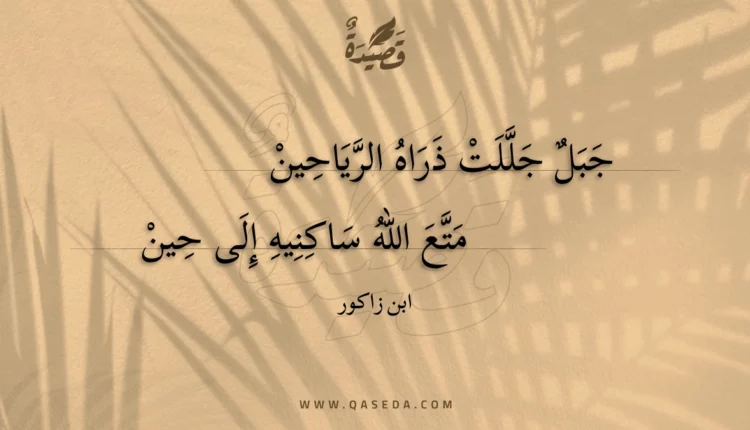 قَصِيْدَةٌ
جَبَلٌ جَلَّلَتْ ذَرَاهُ الرَّيَاحِينْ
مَتَّعَ اللهُ سَاكِنِيهِ إِلَى حِينْ
ابن زاكور
WWW.QASEDA.COM